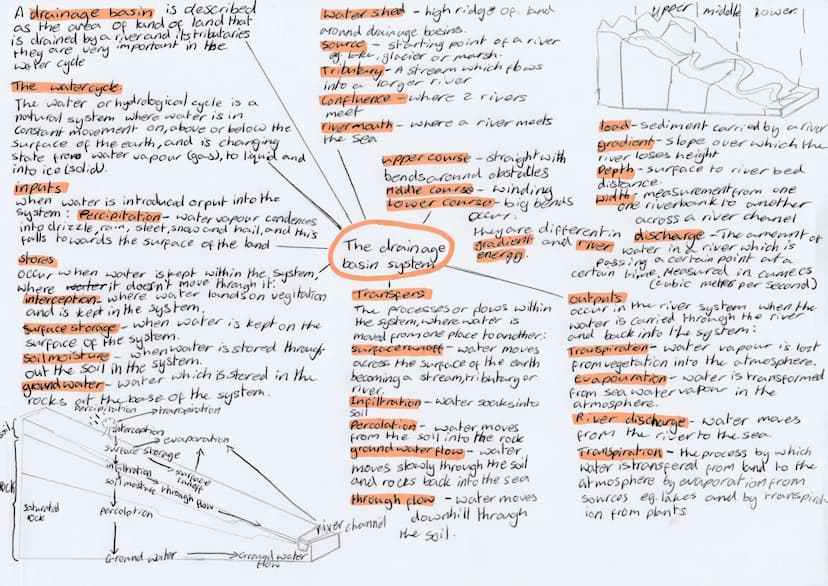 A drainage basin is described
as the area of land of land that
is drained by a river and its tributaries
they are very important in the
water cycle
The watercycle:
The water or hydrological cycle is a
natural system where water is in
constant movement on, above or below the
surface of the earth, and is changing
state from water vapour (gas), to liquid and
into ice (solid).
inputs
when water is introduced or put into the
system: Percipitation - water vapour condences
into drizzle, rain, sleet, snow and hail, and this
falls towards the surface of the land
stores
occur when water is kept within the system,
where water it doesn't move through it.
interception - where water lands on vegitation
and is kept in the system.
surface storage - when water is kept on the
surface of the system.
soil moisture - when water is stored through
out the soil in the system.
groundwater - water which is stored in the
rocks at the base of the system.
percipitation
transpiration
interception
evaporation
surface storage
surface runoff
infiltration
soil moisture
through flow
percolation
Ground water
Ground water
flow
river channel
soil
rock
saturated
rock
Water shed - high ridge of land
around drainage basins.
Source - starting point of a river
eg. lake, glacier or marsh.
Tributary - A stream which flows
into a larger river
Confluence - where 2 rivers
meet
river mouth - where a river meets
the sea
upper course - straight with
bends around obstacles
Middle course - winding
Lower course - big bends
occur.
they are different in
gradient and river
energy.
The drainage
basin system
Transfers
The processes or flows within
the system, where water is
moved from one place to another:
surface runoff - water moves
across the surface of the earth
becoming a stream, tributary or
river.
Infiltration - water soaks into
soil
Percolation - water moves
from the soil into the rock
ground water flow - water
moves slowly through the soil
and rocks back into the sea
through flow - water moves
downhill through
the soil.
upper middle lower
load - sediment carried by a river
gradient - slope over which the
river loses height
Depth - surface to river bed
distance.
Width - measurement from one
one riverbank to another
across a river chanel
discharge - The amount of
water in a river which is
passing a certain point at a
certain time. Measured in cumecs
(cubic metres per second)
outputs
occur in the river system when the
water is carried through the river
and back into the system:
Transpiration - water vapour is lost
from vegetation into the atmosphere.
Evapouration - water is transformed
from sea water vapour in the
atmosphere.
River discharge - water moves
from the river to the sea
Transpiration - the process by which
water is transfered from land to the
atmosphere by evaporation from
sources eg. lakes and by transpirat
ion from plants